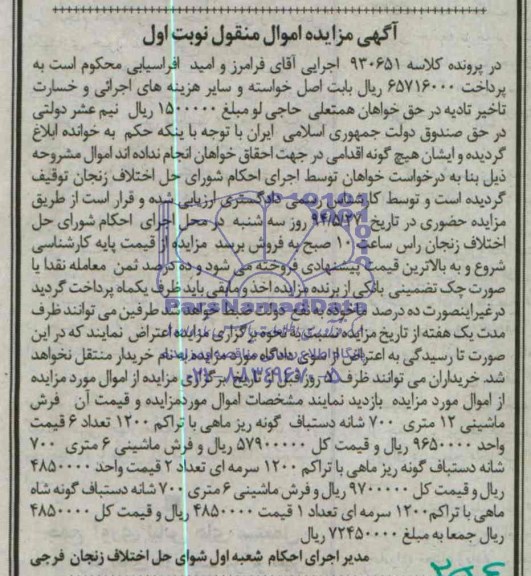 آگهی مزایده اموال منقول نوبت اول
در پرونده کلاسه ۹۳۰۶۵۱ اجرایی آقای فرامرز و امید افراسیابی محکوم است به
پرداخت ۶۵۷۱۶۰۰۰ ریال بابت اصل خواسته و سایر هزینه های اجرائی و خسارت
تاخیر تادیه در حق خواهان همتعلی حاجی لو مبلغ ۱۵۰۰۰۰۰ ریال نیم عشر دولتی
در حق صندوق دولت جمهوری اسلامی ایران با توجه با ینکه حکم به خوانده ابلاغ
گردیده و ایشان هیچ گونه اقدامی در جهت احقاق خواهان انجام نداده اند اموال مشروحه
ذیل بنا به درخواست خواهان توسط اجرای احکام شورای حل اختلاف زنجان توقیف
گردیده است و توسط کارشناس رسمی دادگستری ارزیابی شده و قرار است از طریق
مزایده حضوری در تاریخ ۹۴/۵/۲۷ روز سه شنبه در محل اجرای احکام شورای حل
اختلاف زنجان راس ساعت ۱۰ صبح به فروش برسد مزایده از قیمت پایه کارشناسی
شروع و به بالاترین قیمت پیشنهادی فروخته می شود و ده درصد ثمن معامله نقدا یا
صورت چک تضمینی بانکی از برنده مزایده اخذ و مابقی باید ظرف یکماه پرداخت گردید
در غیر اینصورت ده درصد ماخوذه به نفع دولت ضبط خواهد شد طرفین می توانند ظرف
مدت یک هفته از تاریخ مزایده نسبت به نحوه برگزاری مزایده اعتراض نمایند که در این
صورت تا رسیدگی به اعتراض از سوی دادگاه مورد مزایده به نام خریدار منتقل نخواهد
شد. خریداران می توانند ظرف ۵ روز قبل از تاریخ برگزاری مزایده از اموال مورد مزایده
از اموال مورد مزایده بازدید نمایند مشخصات اموال موردمزایده و قیمت آن فرش
ماشینی ۱۲ متری ۷۰۰ شانه دستباف گونه ریز ماهی با تراکم ۱۲۰۰ تعداد ۶ قیمت
واحد ۹۶۵۰۰۰۰ ریال و قیمت کل ۵۷۹۰۰۰۰۰ ریال و فرش ماشینی ۶ متری ۷۰۰
شانه دستباف گونه ریز ماهی با تراکم ۱۲۰۰ سرمه ای تعداد ۲ قیمت واحد ۴۸۵۰۰۰۰
ریال و قیمت کل ۹۷۰۰۰۰۰ ریال و فرش ماشینی ۶ متری ۷۰۰ شانه دستباف گونه شاه
ماهی با تراکم ۱۲۰۰ سرمه ای تعداد ۱ قیمت ۴۸۵۰۰۰۰ ریال و قیمت کل ۴۸۵۰۰۰۰
ریال جمعا به مبلغ ۷۲۴۵۰۰۰۰ ریال
مدیر اجرای احکام شعبه اول شوای حل اختلاف زنجان فرجی
ParsNamadData
۰۲۱-۸۸۳۴۹۶۷۰